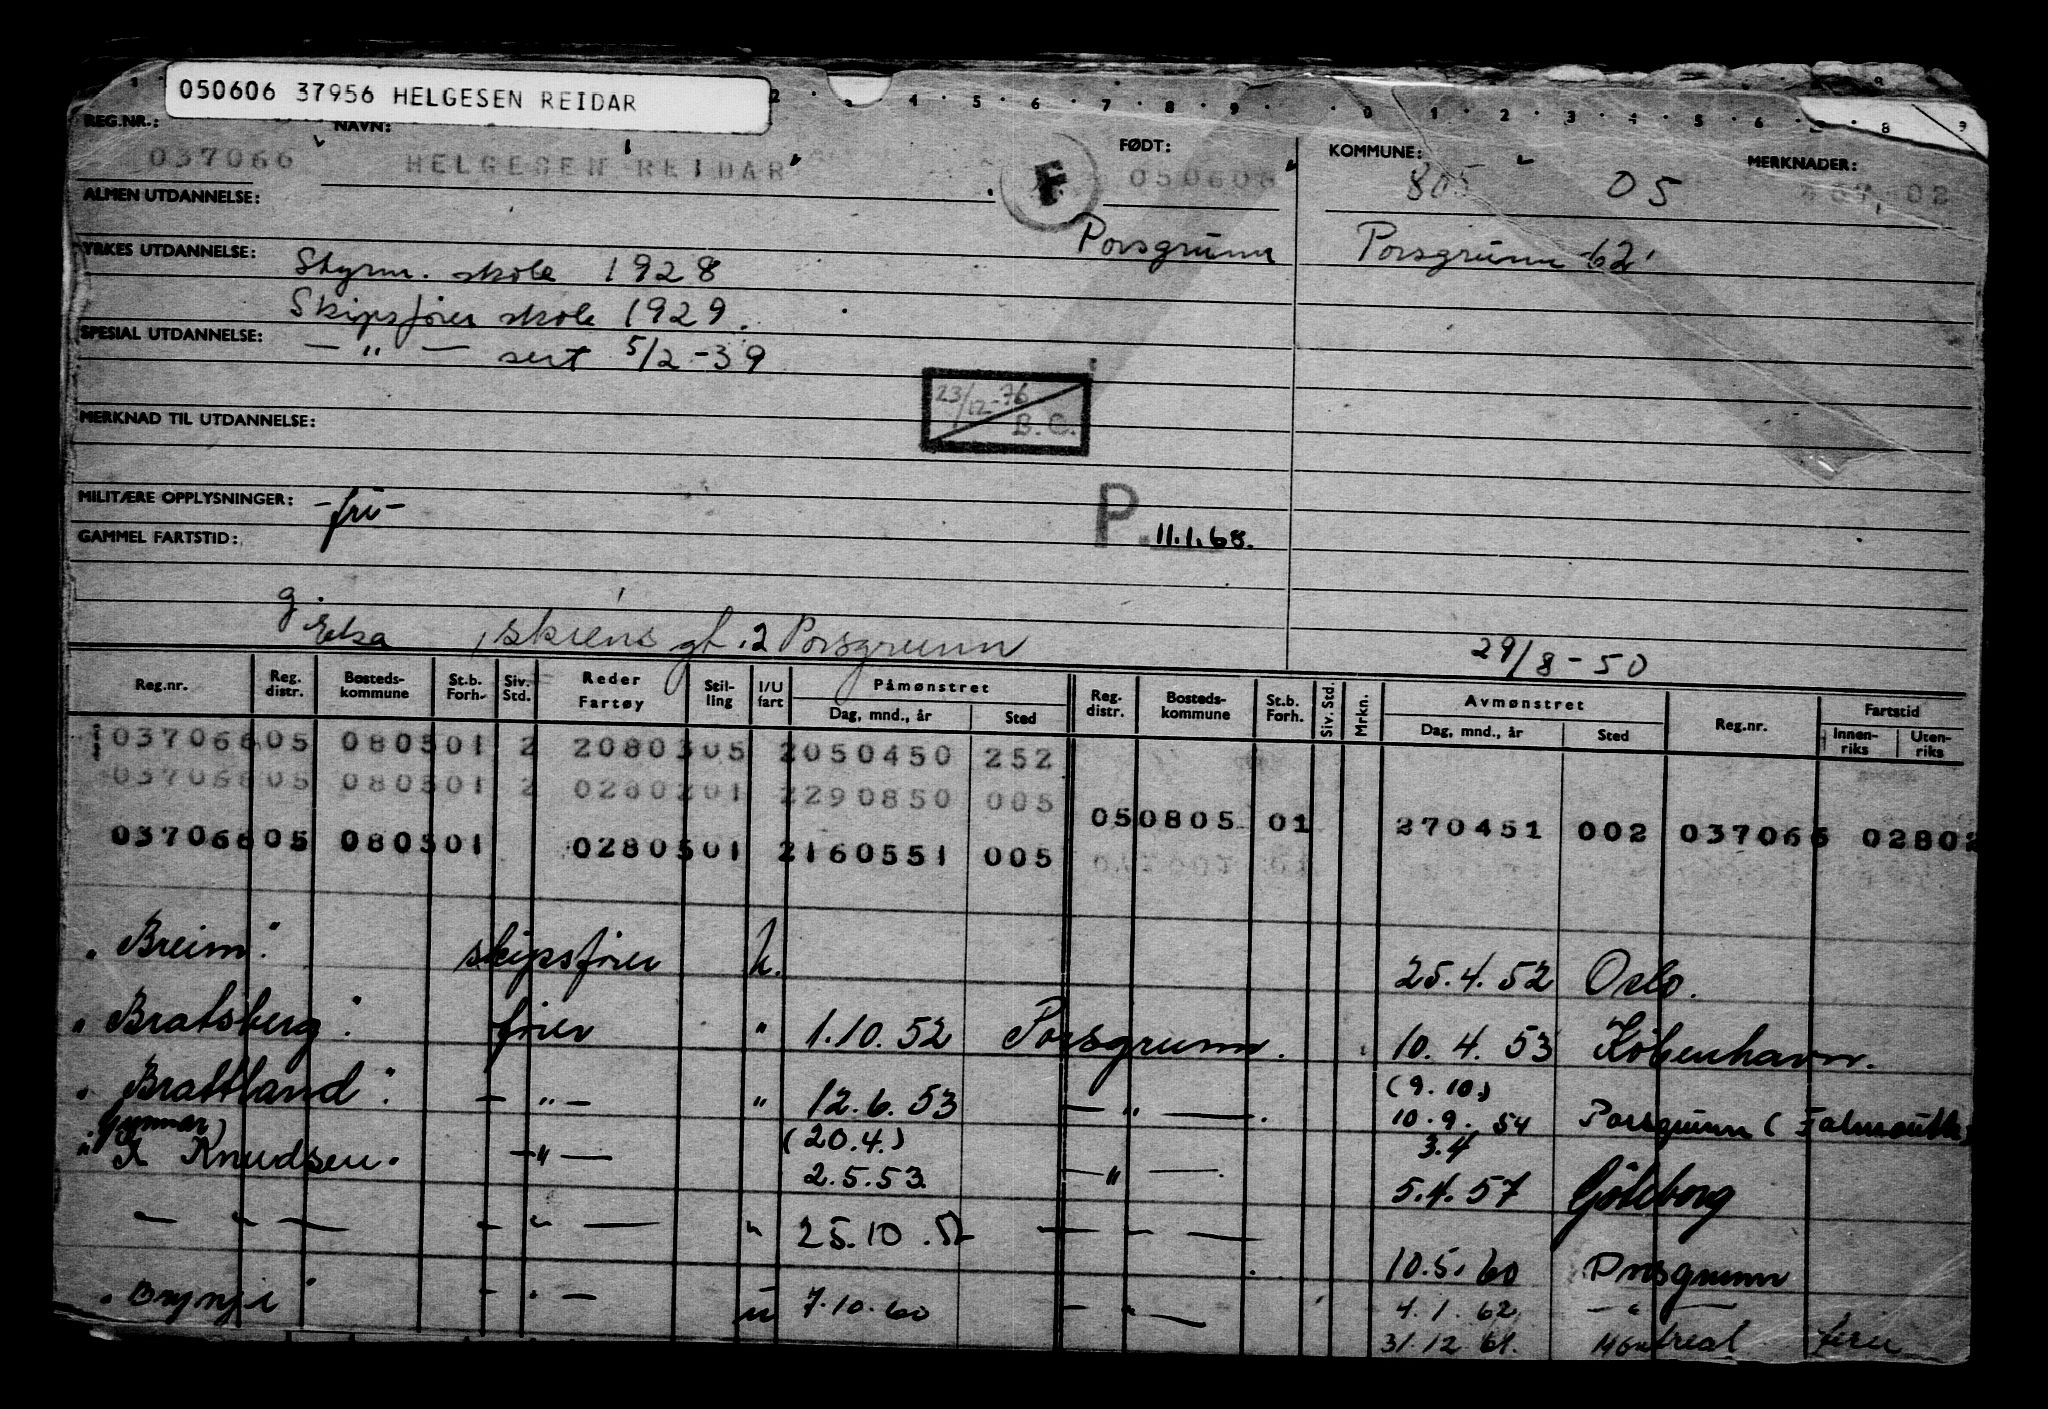 050606 37956 HELGESEN REIDAR
REG.NR.: NAVN: FØDT: KOMMUNE: MERKNADER:
037066 HELGESEN REIDAR F 050606 805 05
ALMEN UTDANNELSE:
Porsgrunn Porsgrunn 62
YRKES UTDANNELSE: Styrm. skole 1928
Skipsfører skole 1929.
SPESIAL UTDANNELSE: — " — sert 5/2-39
23/12-76 B.C.
MERKNAD TIL UTDANNELSE:
MILITÆRE OPPLYSNINGER: -fri-
P. 11.1.68.
GAMMEL FARTSTID:
g. Elsa, Skiens gt. 12 Porsgrunn 29/8-50
Reg.nr. Reg. distr. Bosteds- kommune St.b. Forh. Siv. Std. Reder Fartøy Stil- ling I/U fart Påmønstret Dag, mnd., år Sted Reg. distr. Bosteds- kommune St.b. Forh. Siv. Std. Mrkn. Avmønstret Dag, mnd., år Sted Reg.nr. Fartstid Innen- riks Uten- riks
037066 05 0805 01 2 2080305 2050450 252
037066 05 0805 01 2 0280201 2290850 005
050805 01 270451 002 037066 02802
037066 05 0805 01 0280501 2160551 005
"Breim" skipsfører u. 25.4.52 Oslo.
"Bratsberg" fører " 1.10.52 Porsgrunn. 10.4.53 København.
"Brattland" — " — " 12.6.53 — " —. (9.10) 10.9.54 Porsgrunn (Falmouth)
"Gunnar Knudsen. — " — (20.4.) 2.5.53 — " —. 3.4 5.4.57 Göteborg
— " — — " — " 25.10 — " — 10.5.60 Porsgrunn
"Brynje" — " — u 7.10.60 — " — 4.1.62 — " —
31.12.61. Montreal